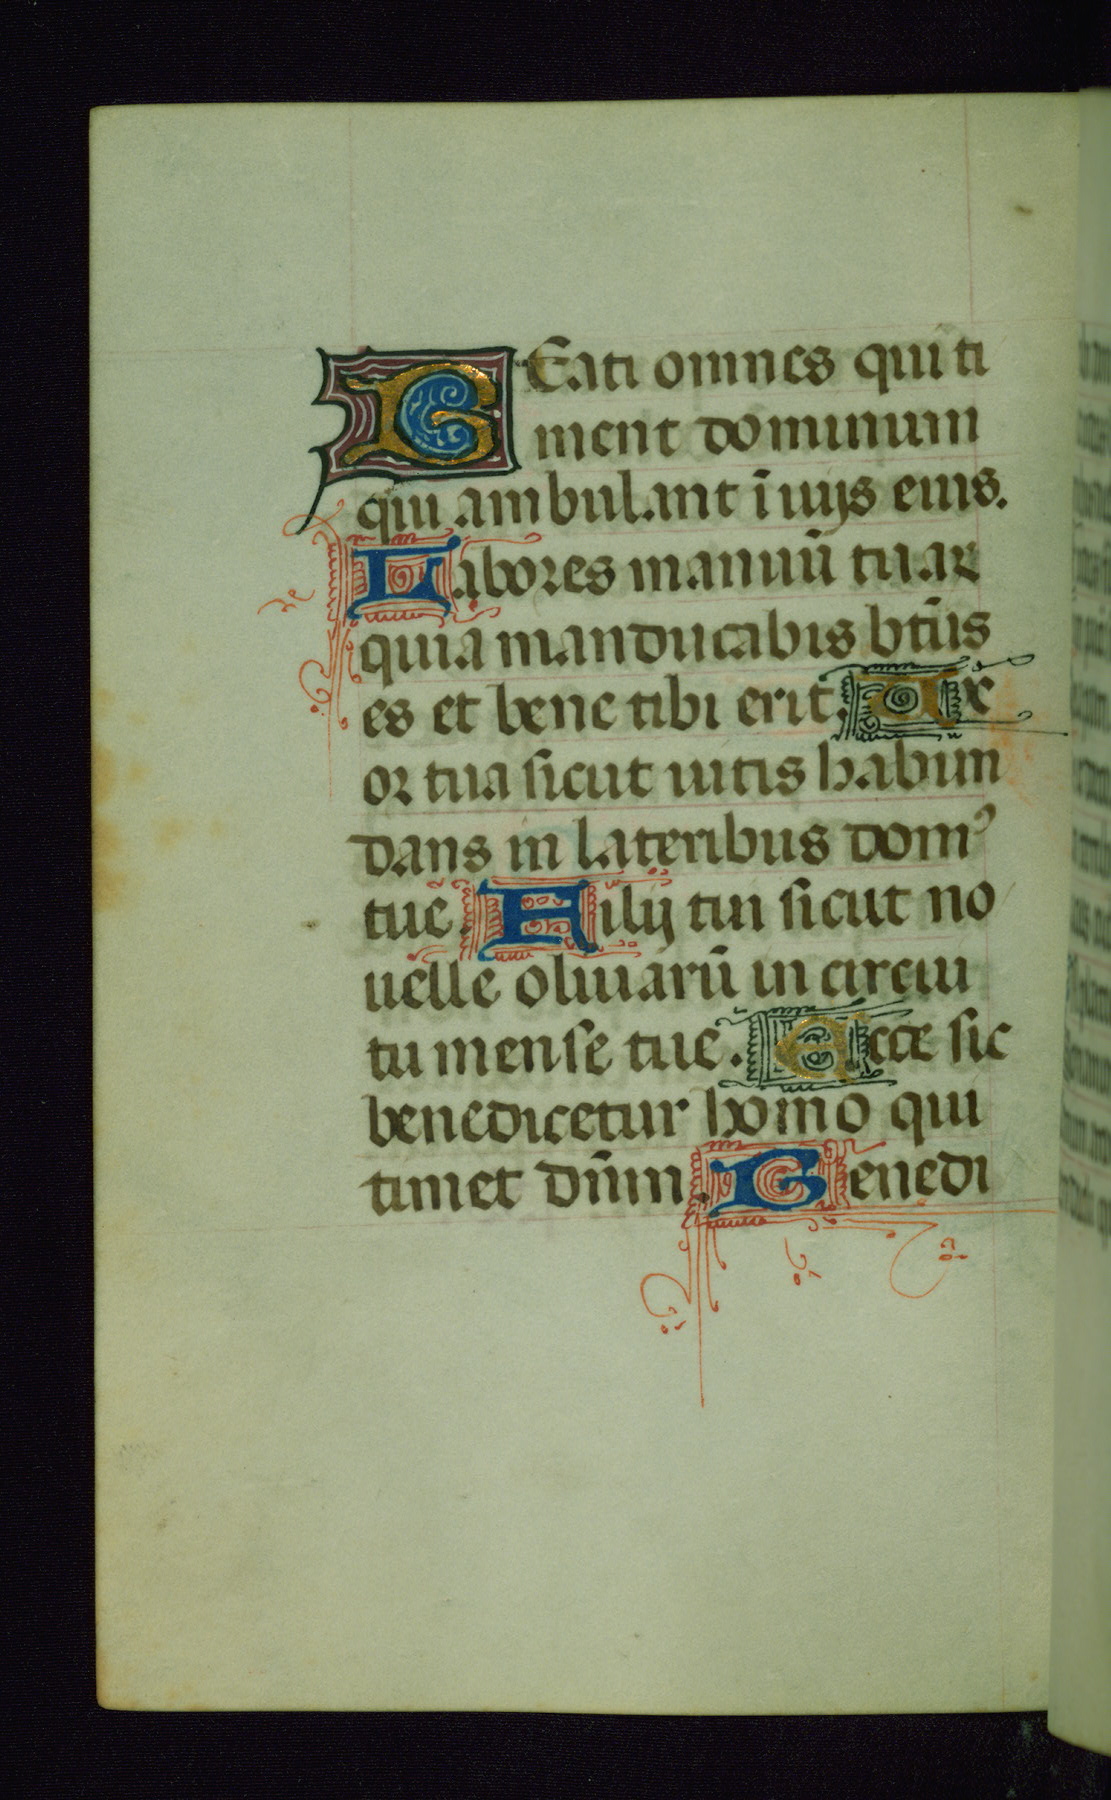 BEati omnes qui ti
ment dominum
qui ambulant ī uijs eius.
Labores manuū tuar
quia manducabis bt̄us
es et bene tibi erit. Ux
or tua sicut uitis habun
dans in lateribus domꝰ
tue. Filij tui sicut no
uelle oliuarū in circui
tu mense tue. Ecce sic
benedicetur homo qui
timet dn̄m. Benedi